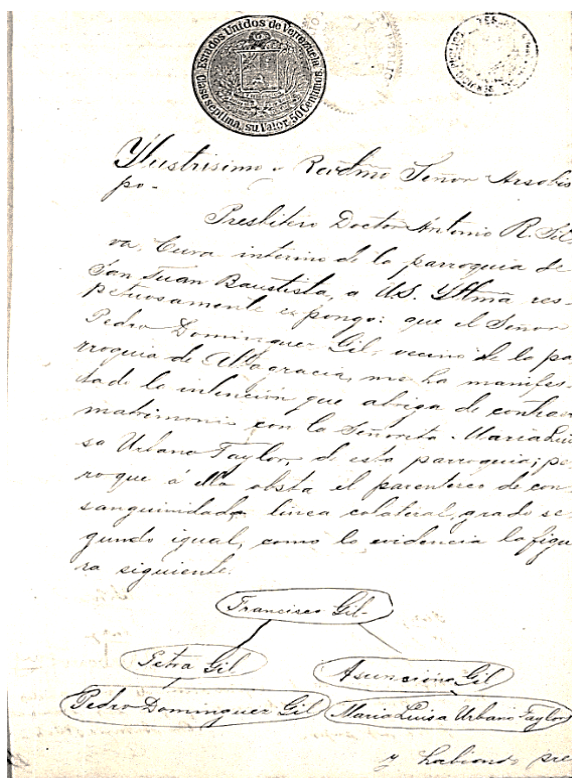 Estados Unidos de Venezuela
Clase séptima, su Valor 50 Centimos.
Ylustrísimo y Revdmo Señor Arzobis
po-
Presbítero Doctor Antonio R. Sil-
va, Cura interino de la parroquia de
San Juan Bautista, a US. Yltma res-
petuosamente expongo: que el Señor
Pedro Dominguez Gil, vecino de la pa
rroquia de Altagracia, me ha manifes-
tado la intención que abriga de contraer
matrimonio con la Señorita María Lui
sa Urbano Taylor, de esta parroquia; pe-
ro que á ello obsta el parentesco de con-
sanguinidad, línea colateral, grado se-
gundo igual, como lo evidencia la figu
ra siguiente.
Francisco Gil
Petra Gil
Asunción Gil
Pedro Dominguez Gil
María Luisa Urbano Taylor
y habiendo pre